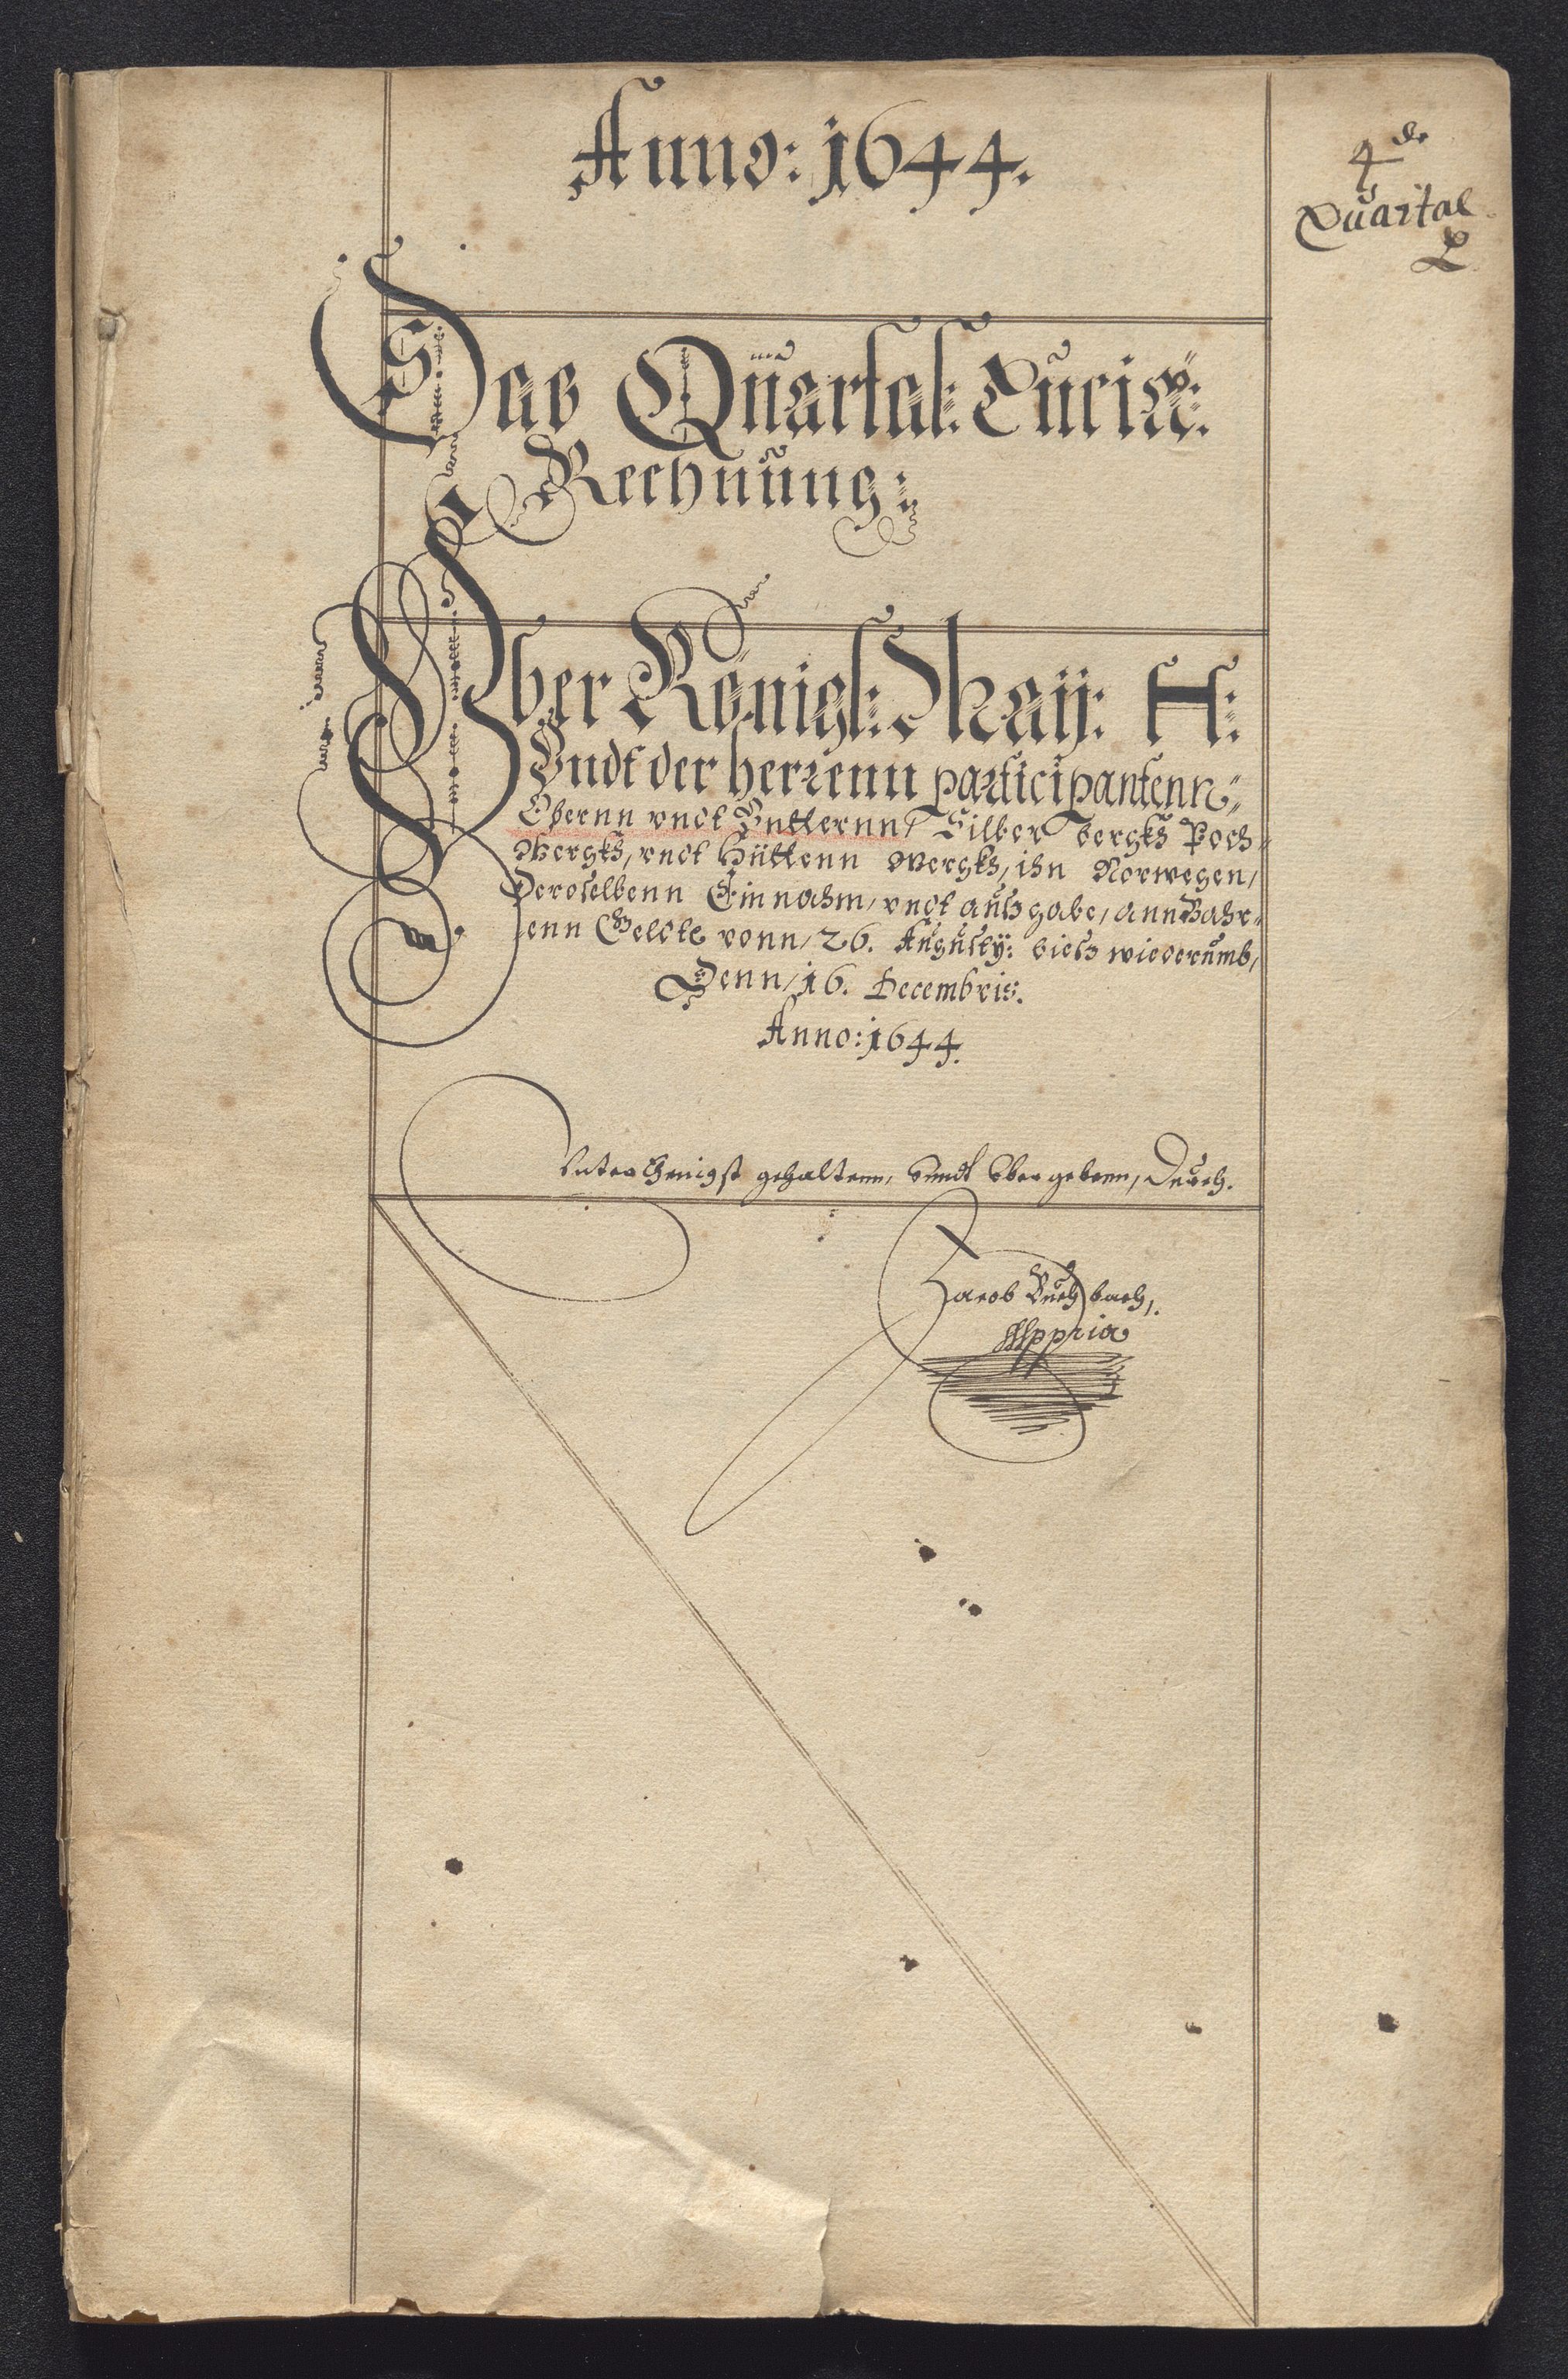 Anno: 1644.
4 de
Quartal
Das Quartal: Luciæ:
Rechnung:
Vber Königl: May: H:
Vndt der herrenn participantenn
Obernn vndt Vntternn, Silber bergks Poch
Wergks, vndt Hüttenn Wergks, ihn Norwegen,
Deroselbenn Einnahm, vndt außgabe, ann Bahr-
enn Geldte vonn, 26. Augusty: bieß wiederumb,
Denn, 16. Decembris.
Anno: 1644.
Vnterthenigst gehaltenn, Vnndt Vber gebenn, Durch.
Jacob Buchbach,
Mppria